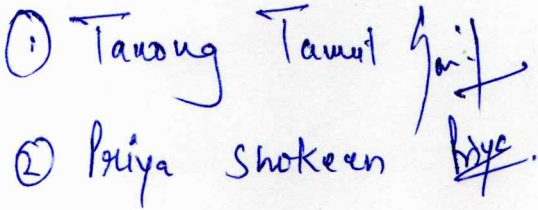 ① Tarong Tamut
② Priya Shokeen Priya.